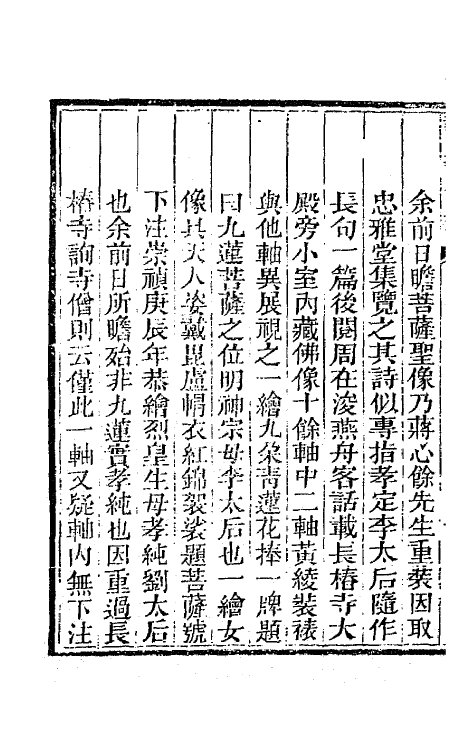 余前日瞻菩薩聖像乃蔣心餘先生重裝因取
忠雅堂集覽之其詩似專指孝定李太后隨作
長句一篇後閱周在浚燕舟客話載長椿寺大
殿旁小室內藏佛像十餘軸中二軸黃綾裝裱
與他軸異展視之一繪九朶靑蓮花捧一牌題
曰九蓮菩薩之位明神宗母李太后也一繪女
像具天人姿戴毘盧帽衣紅錦袈裟題菩薩號
下注崇禎庚辰年恭繪烈皇生母孝純劉太后
也余前日所瞻殆非九蓮實孝純也因重過長
椿寺詢寺僧則云僅此一軸又疑軸內無下注